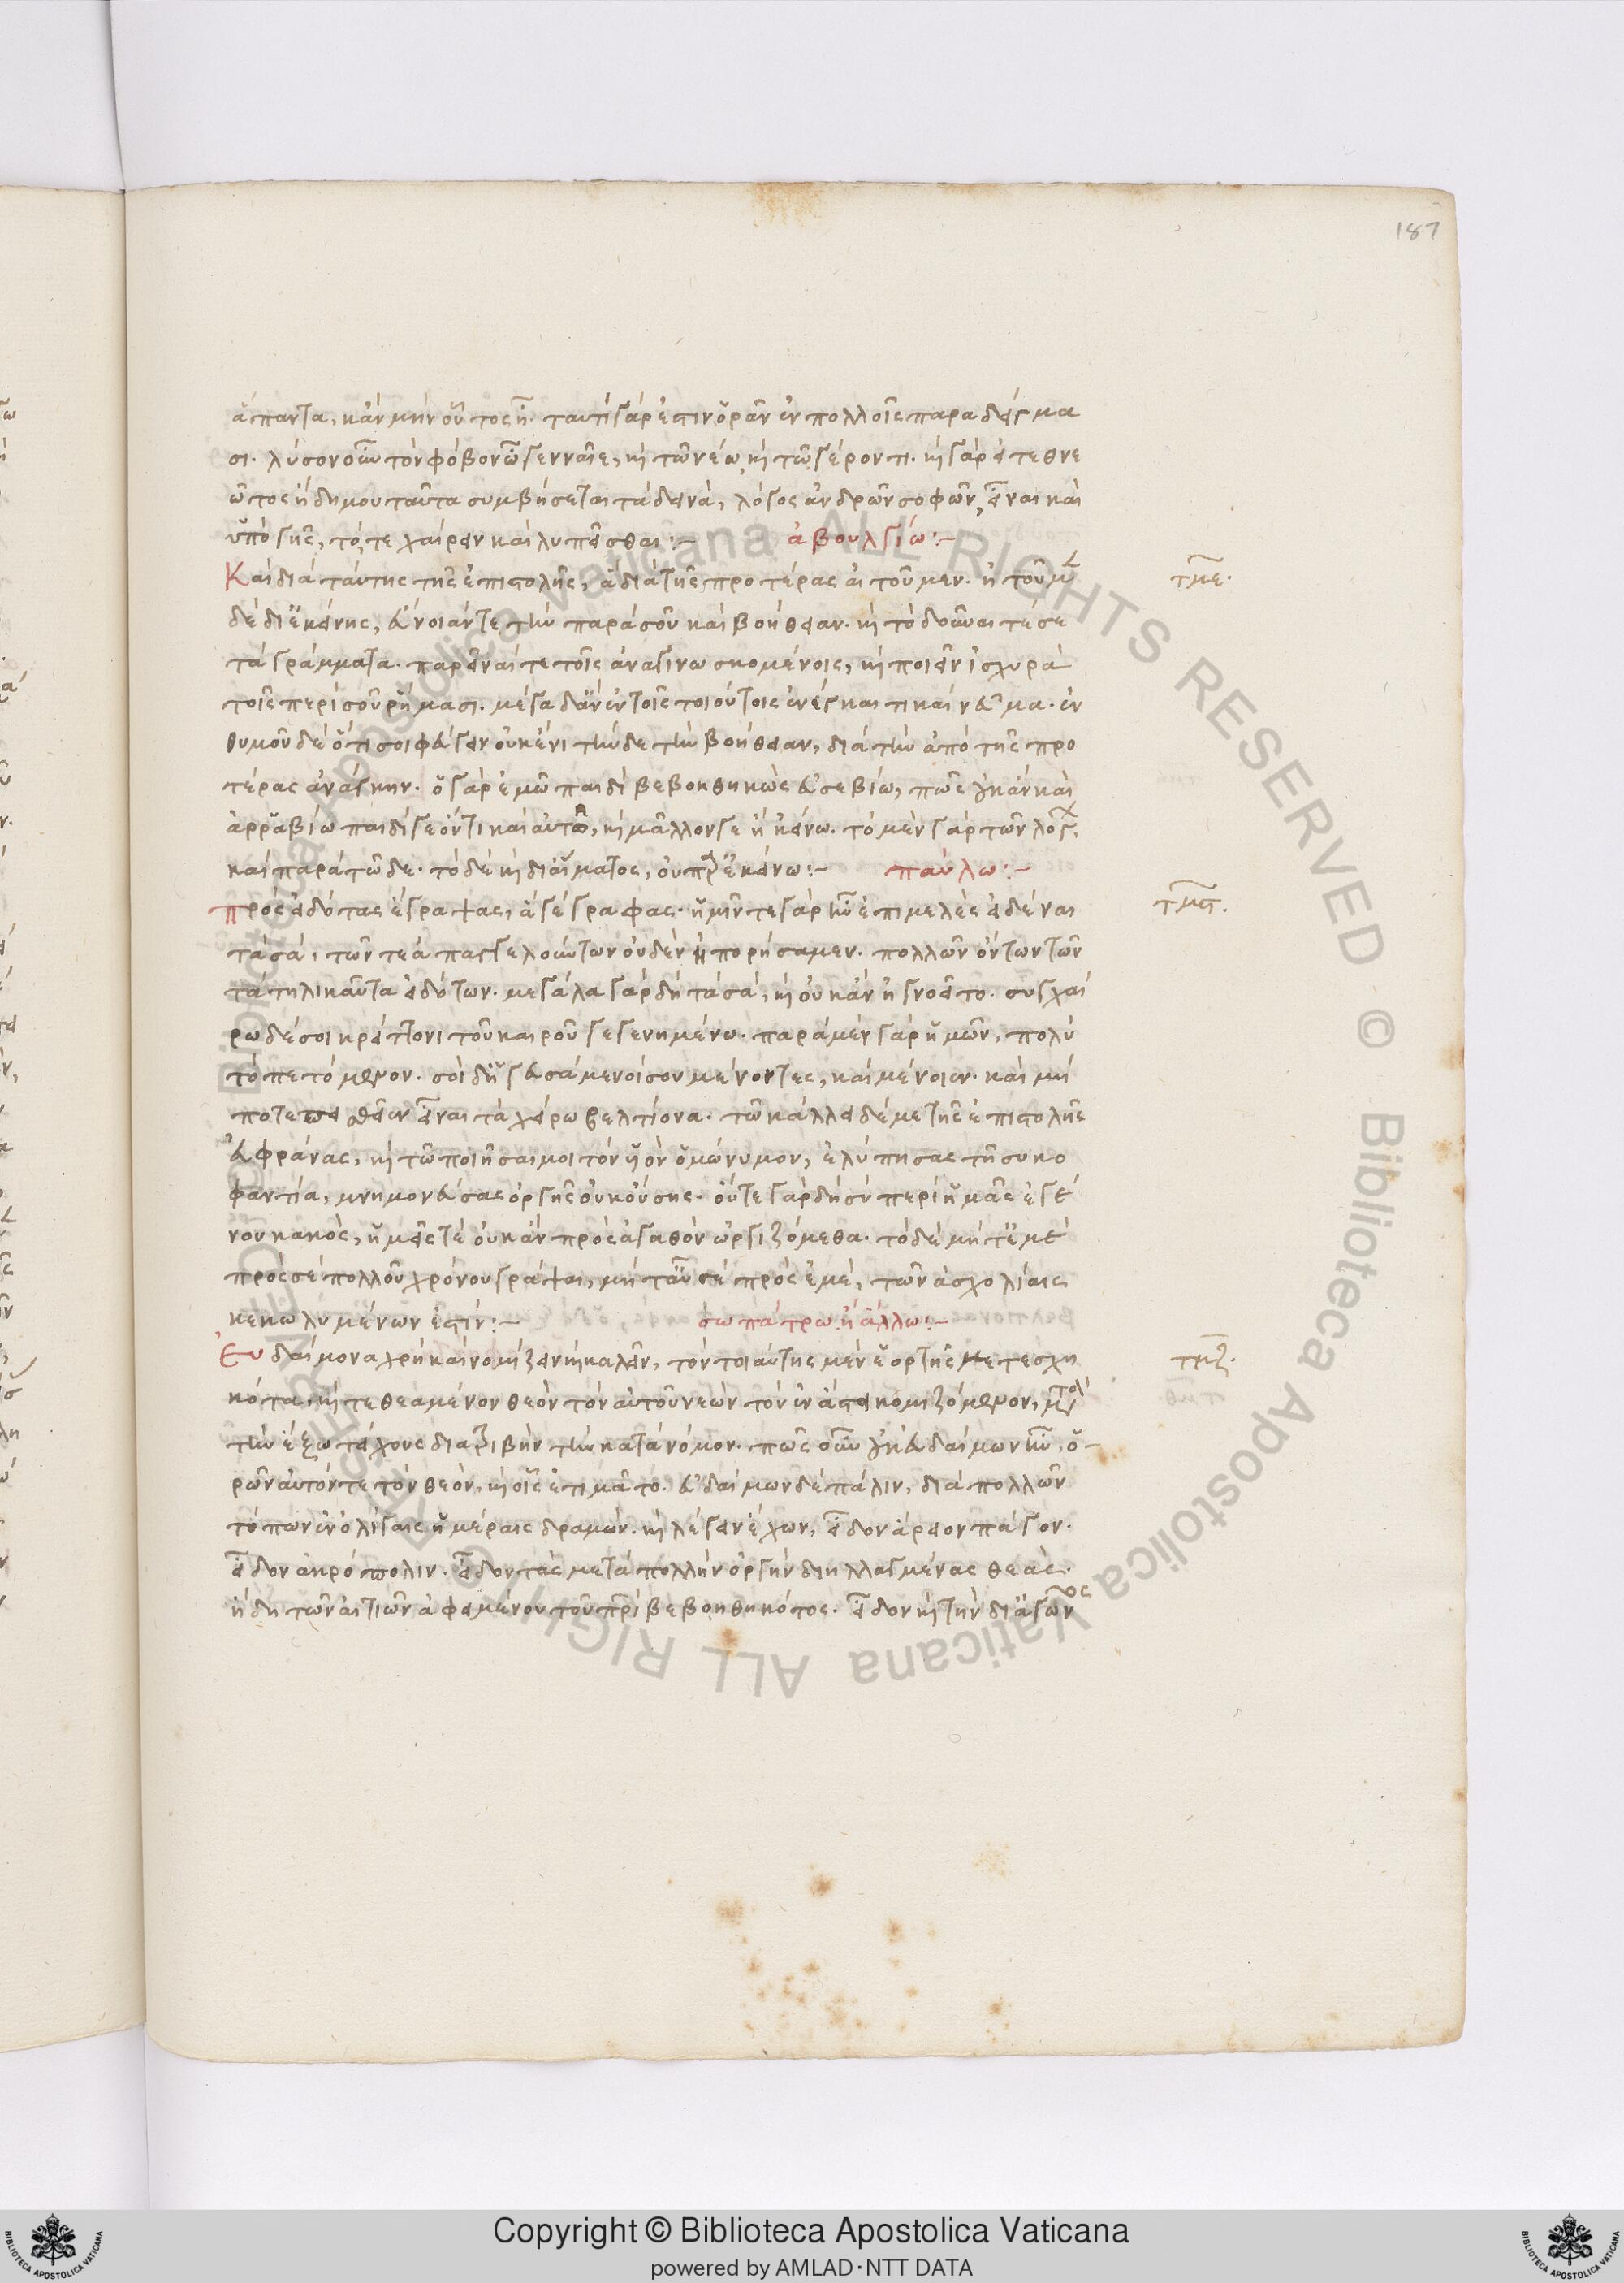 187
ἅπαντα, κἂν μὴν οὗτος ᾖ. ταυτὶ γάρ ἐστιν ὁρᾶν ἐν πολλοῖς παραδείγμα
σι. λῦσον οὖν τὸν φόβον ὦ γενναῖε, καὶ τῷ νέῳ καὶ τῷ γέροντι. καὶ γὰρ εἰ τεθνε
ῶτος ἤδη μου ταῦτα συμβήσεται τὰ δεινὰ, λόγος ἀνδρῶν σοφῶν, εἶναι καὶ
ὑπὸ γῆς, τό, τε χαίρειν καὶ λυπεῖσθαι:-
ἀβουλγίω:-
Καὶ διὰ ταύτης τῆς ἐπιστολῆς, ἃ διὰ τῆς προτέρας αἰτοῦμεν. αἰτοῦμεν
τμε.
δὲ δι' ἐκείνης, εὔνοιάν τε τὴν παρὰ σοῦ καὶ βοήθειαν. καὶ τὸ δοῦναι τέ σε
τὰ γράμματα. παρεῖναί τε τοῖς ἀναγινωσκομένοις, καὶ ποιεῖν ἰσχυρὰ
τοῖς περὶ σοῦ ῥήμασι. μέγα δ' ἂν ἐν τοῖς τοιούτοις ἐνέγκαι τι καὶ νεῦμα. ἐν
θυμοῦ δὲ ὅτι σοι φεύγειν οὐκ ἔνι τήνδε τὴν βοήθειαν, διὰ τὴν ἀπὸ τῆς προ
τέρας ἀνάγκην. ὁ γὰρ ἐμῷ παιδὶ βεβοηθηκὼς εὐσεβίω, πῶς οὐκ ἂν καὶ
ἀρραβίω παιδί γε ὄντι καὶ αὐτῶ, καὶ μᾶλλόν γε ἢ κείνω. τὸ μὲν γὰρ τῶν λόγ.
καὶ παρὰ τῶδε. τὸ δὲ καὶ δι' αἵματος, οὐ παρ' ἐκείνω:-
παύλω:-
πρὸς εἰδότας ἔγραψας, ἃ γέγραφας. ἡμῖν τε γὰρ ἦν ἐπιμελὲς εἰδέναι
τμϛ.
τὰ σά. τῶν τε ἀπαγγελούντων οὐδὲν ἠπορήσαμεν. πολλῶν ὄντων τῶν
τὰ τηλικαῦτα εἰδότων. μεγάλα γὰρ δὴ τὰ σά, καὶ οὐκ ἂν ἠγνοεῖτο. συγχαί
ρω δέ σοι κρείττονι τοῦ καιροῦ γεγενημένω. παρὰ μὲν γὰρ ἡμῶν, πολὺ
τὸ πετόμενον. σοὶ δ' ἡγευσάμενοί σου μένοντες, καὶ μένοιεν. καὶ μή
ποτε πεισθεῖεν εἶναι τὰ χείρω βελτίονα. τῶ κάλλει δέ με τῆς ἐπιστολῆς
εὐφράνας, καὶ τῶ ποιῆσαί μοι τὸν υἱὸν ὁμώνυμον, ἐλύπησας τῆ συκο
φαντία, μνημονεύσας ὀργῆς οὐκ οὔσης. οὔτε γὰρ δὴ σὺ περὶ ἡμᾶς ἐγέ
νου κακὸς, ἡμεῖς τέ οὐκ ἂν πρὸς ἀγαθὸν ὠργιζόμεθα. τὸ δὲ μήτ' ἐμὲ
πρὸς σὲ πολλοῦ χρόνου γράψαι, μήτ' αὖ σὲ πρὸς ἐμὲ, τῶν ἀσχολίαις
κεκωλυμένων ἐστίν:-
σωπάτρω. ἢ ἄλλω:-
Εὐδαίμονα χρὴ καὶ νομίζειν καὶ καλεῖν, τὸν τοιαύτης μὲν ἑορτῆς μετεσχη
τμζ.
κότα, καὶ τεθεαμένον θεὸν τὸν αὑτοῦ νεὼν τὸν ἐν ἄστει κομιζόμενον, μετὰ
τὴν ἔξω τείχους διατριβὴν τὴν κατὰ νόμον. πῶς οὖν οὐκ εὐδαίμων ἦν, ὁ-
ρῶν αὐτόν τε τὸν θεὸν, καὶ οἷς ἐτιμᾶτο. εὐδαίμων δὲ πάλιν, διὰ πολλῶν
τόπων ἐν ὀλίγαις ἡμέραις δραμών. καὶ λέγειν ἔχων, εἶδον ἄρειον πάγον.
εἶδον ἀκρόπολιν. εἶδον τὰς μετὰ πολλὴν ὀργὴν διηλλαγμένας θεάς.
ἤδη τῶν αἰτιῶν ἀφειμένου τοῦ πατρὶ βεβοηθηκότος. εἶδον καὶ τὴν δι' ἀγῶνος